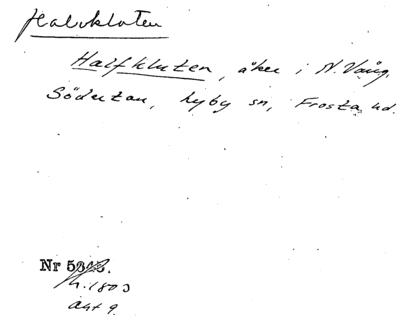 Halvkluten
Halfkluten, åker i N. Vång.
Södertou, Lyby sn, Frosta hd.
Nr
h. 1803
akt 9.